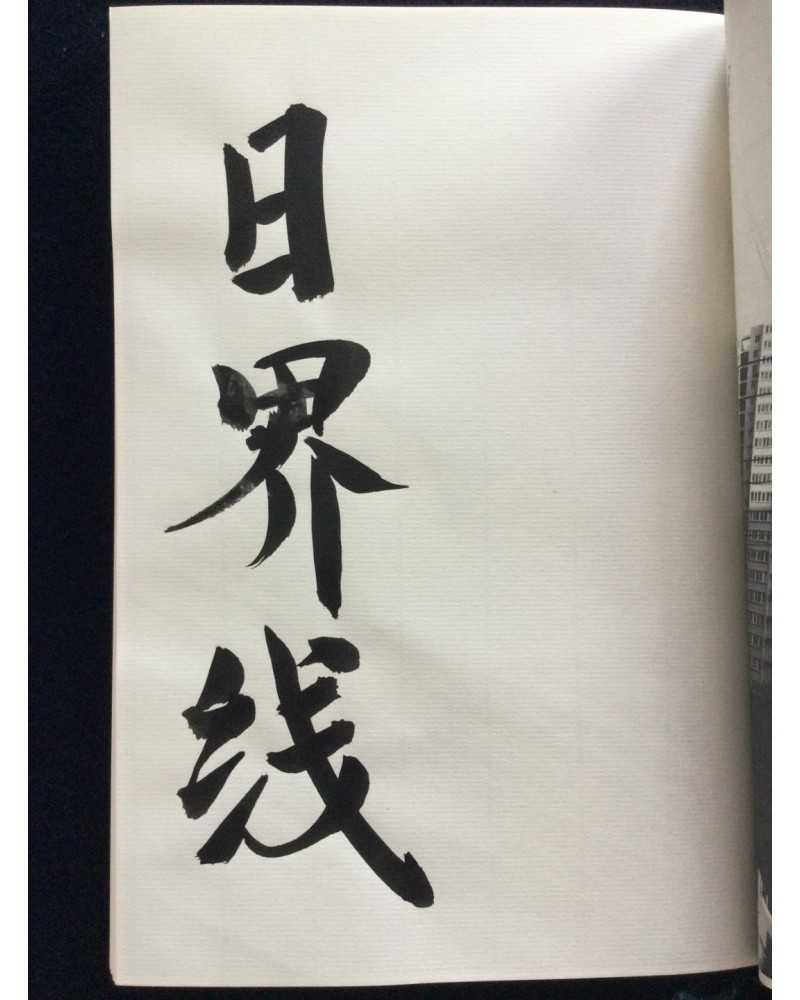 日界线